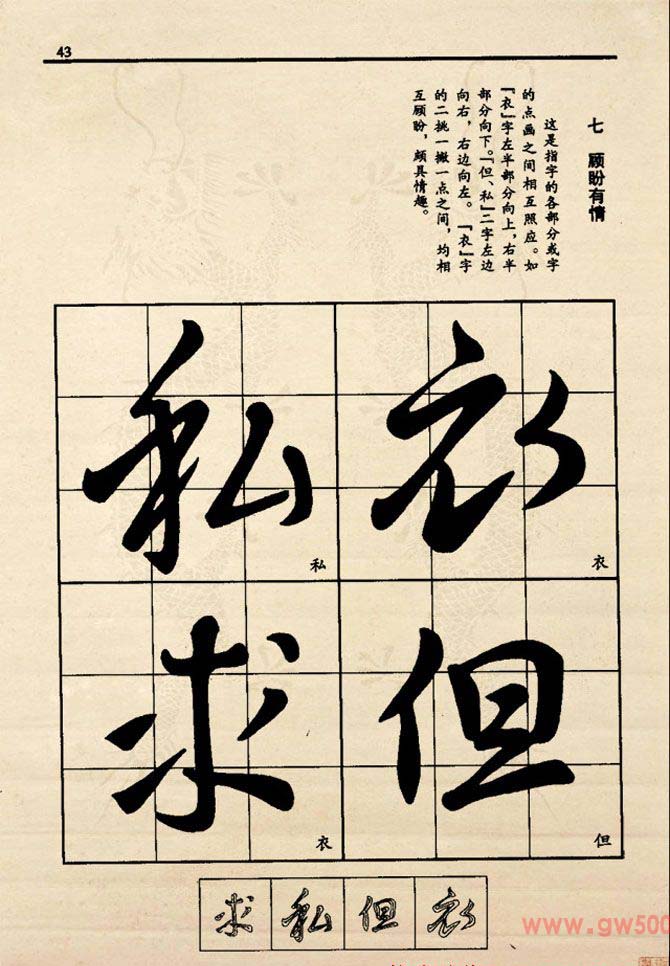 43
七 顾盼有情
这是指字的各部分或字
的点画之间相互照应。如
『衣』字左半部分向上,右半
部分向下。『但、私』二字左边
向右,右边向左。『衣』字
的二挑一撇一点之间,均相
互顾盼,颇具情趣。
衣
衣
但
但
私
私
求
衣
衣但私求
www.gw500